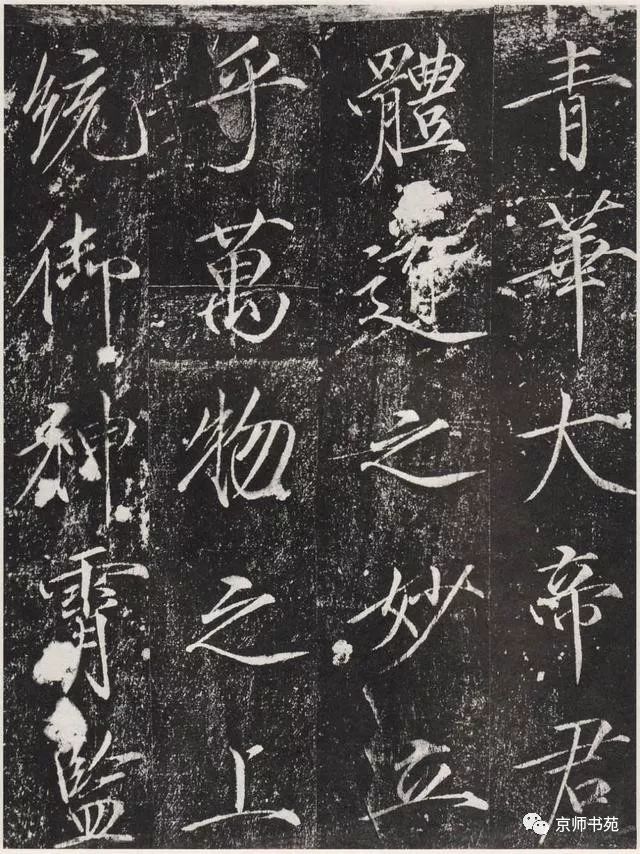 青華大帝君
體道之妙立
乎萬物之上
統御神霄監
京师书苑